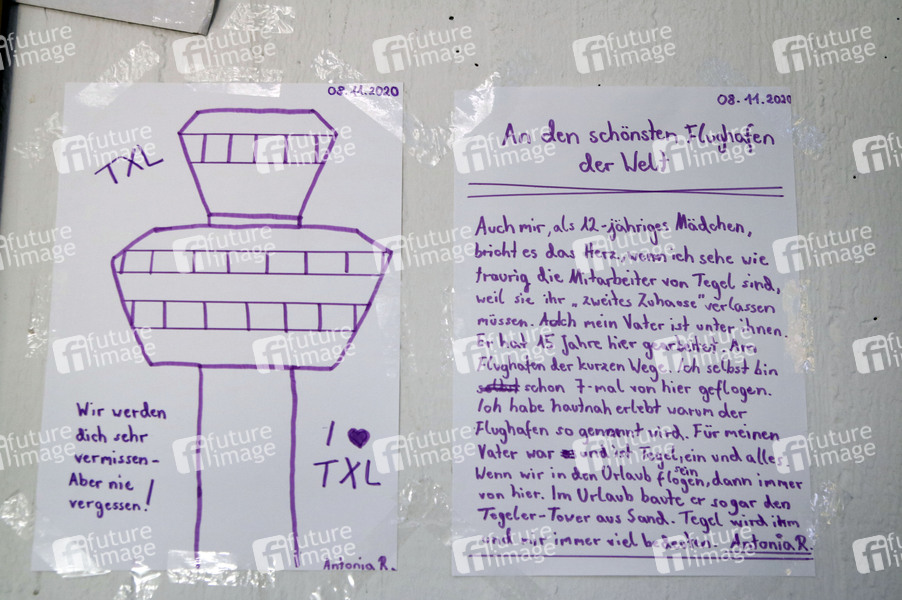 08.11.2020
TXL
Wir werden
dich sehr
vermissen-
Aber nie
vergessen!
I ♥
TXL
Antonia R.
08.11.2020
An den schönsten Flughafen
der Welt
Auch mir, als 12-jähriges Mädchen,
bricht es das Herz, wenn ich sehe wie
traurig die Mitarbeiter von Tegel sind,
weil sie ihr „zweites Zuhause" verlassen
müssen. Auch mein Vater ist unter ihnen.
Er hat 15 Jahre hier gearbeitet. Am
Flughafen der kurzen Wege. Ich selbst bin
selbst schon 7-mal von hier geflogen.
Ich habe hautnah erlebt warum der
Flughafen so genannt wird. Für meinen
Vater war und ist Tegel sein ein und alles.
Wenn wir in den Urlaub flogen, dann immer
von hier. Im Urlaub baute er sogar den
Tegeler-Tover aus Sand. Tegel wird ihm
und mir immer viel bedeuten. Antonia R.
future
image